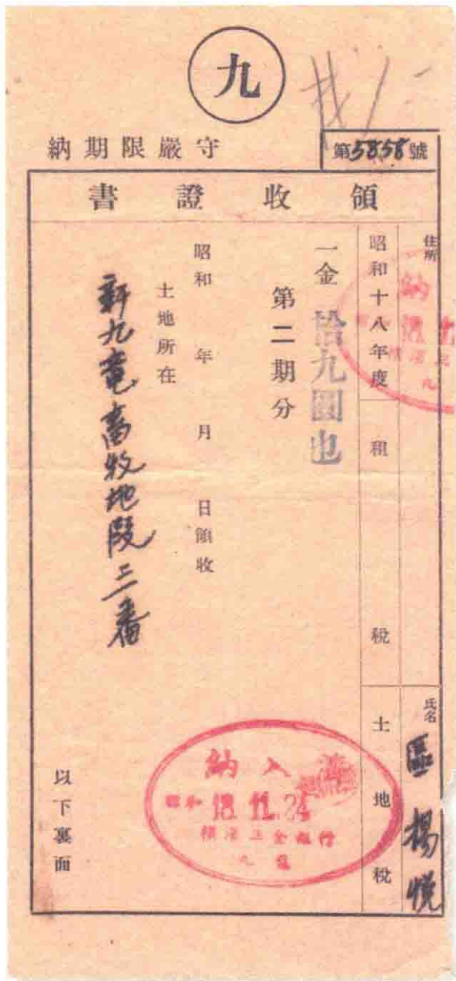 九
納期限嚴守
第5858號
領收證書
住所
氏名 區楊悦
昭和十八年度 租稅 土地稅
一金 拾九圓也
第二期分
昭和 年 月 日領收
土地所在
新九竜畜牧地段三番
以下裏面
納入
昭和 18.11.24
橫濱正金銀行
九龍
納